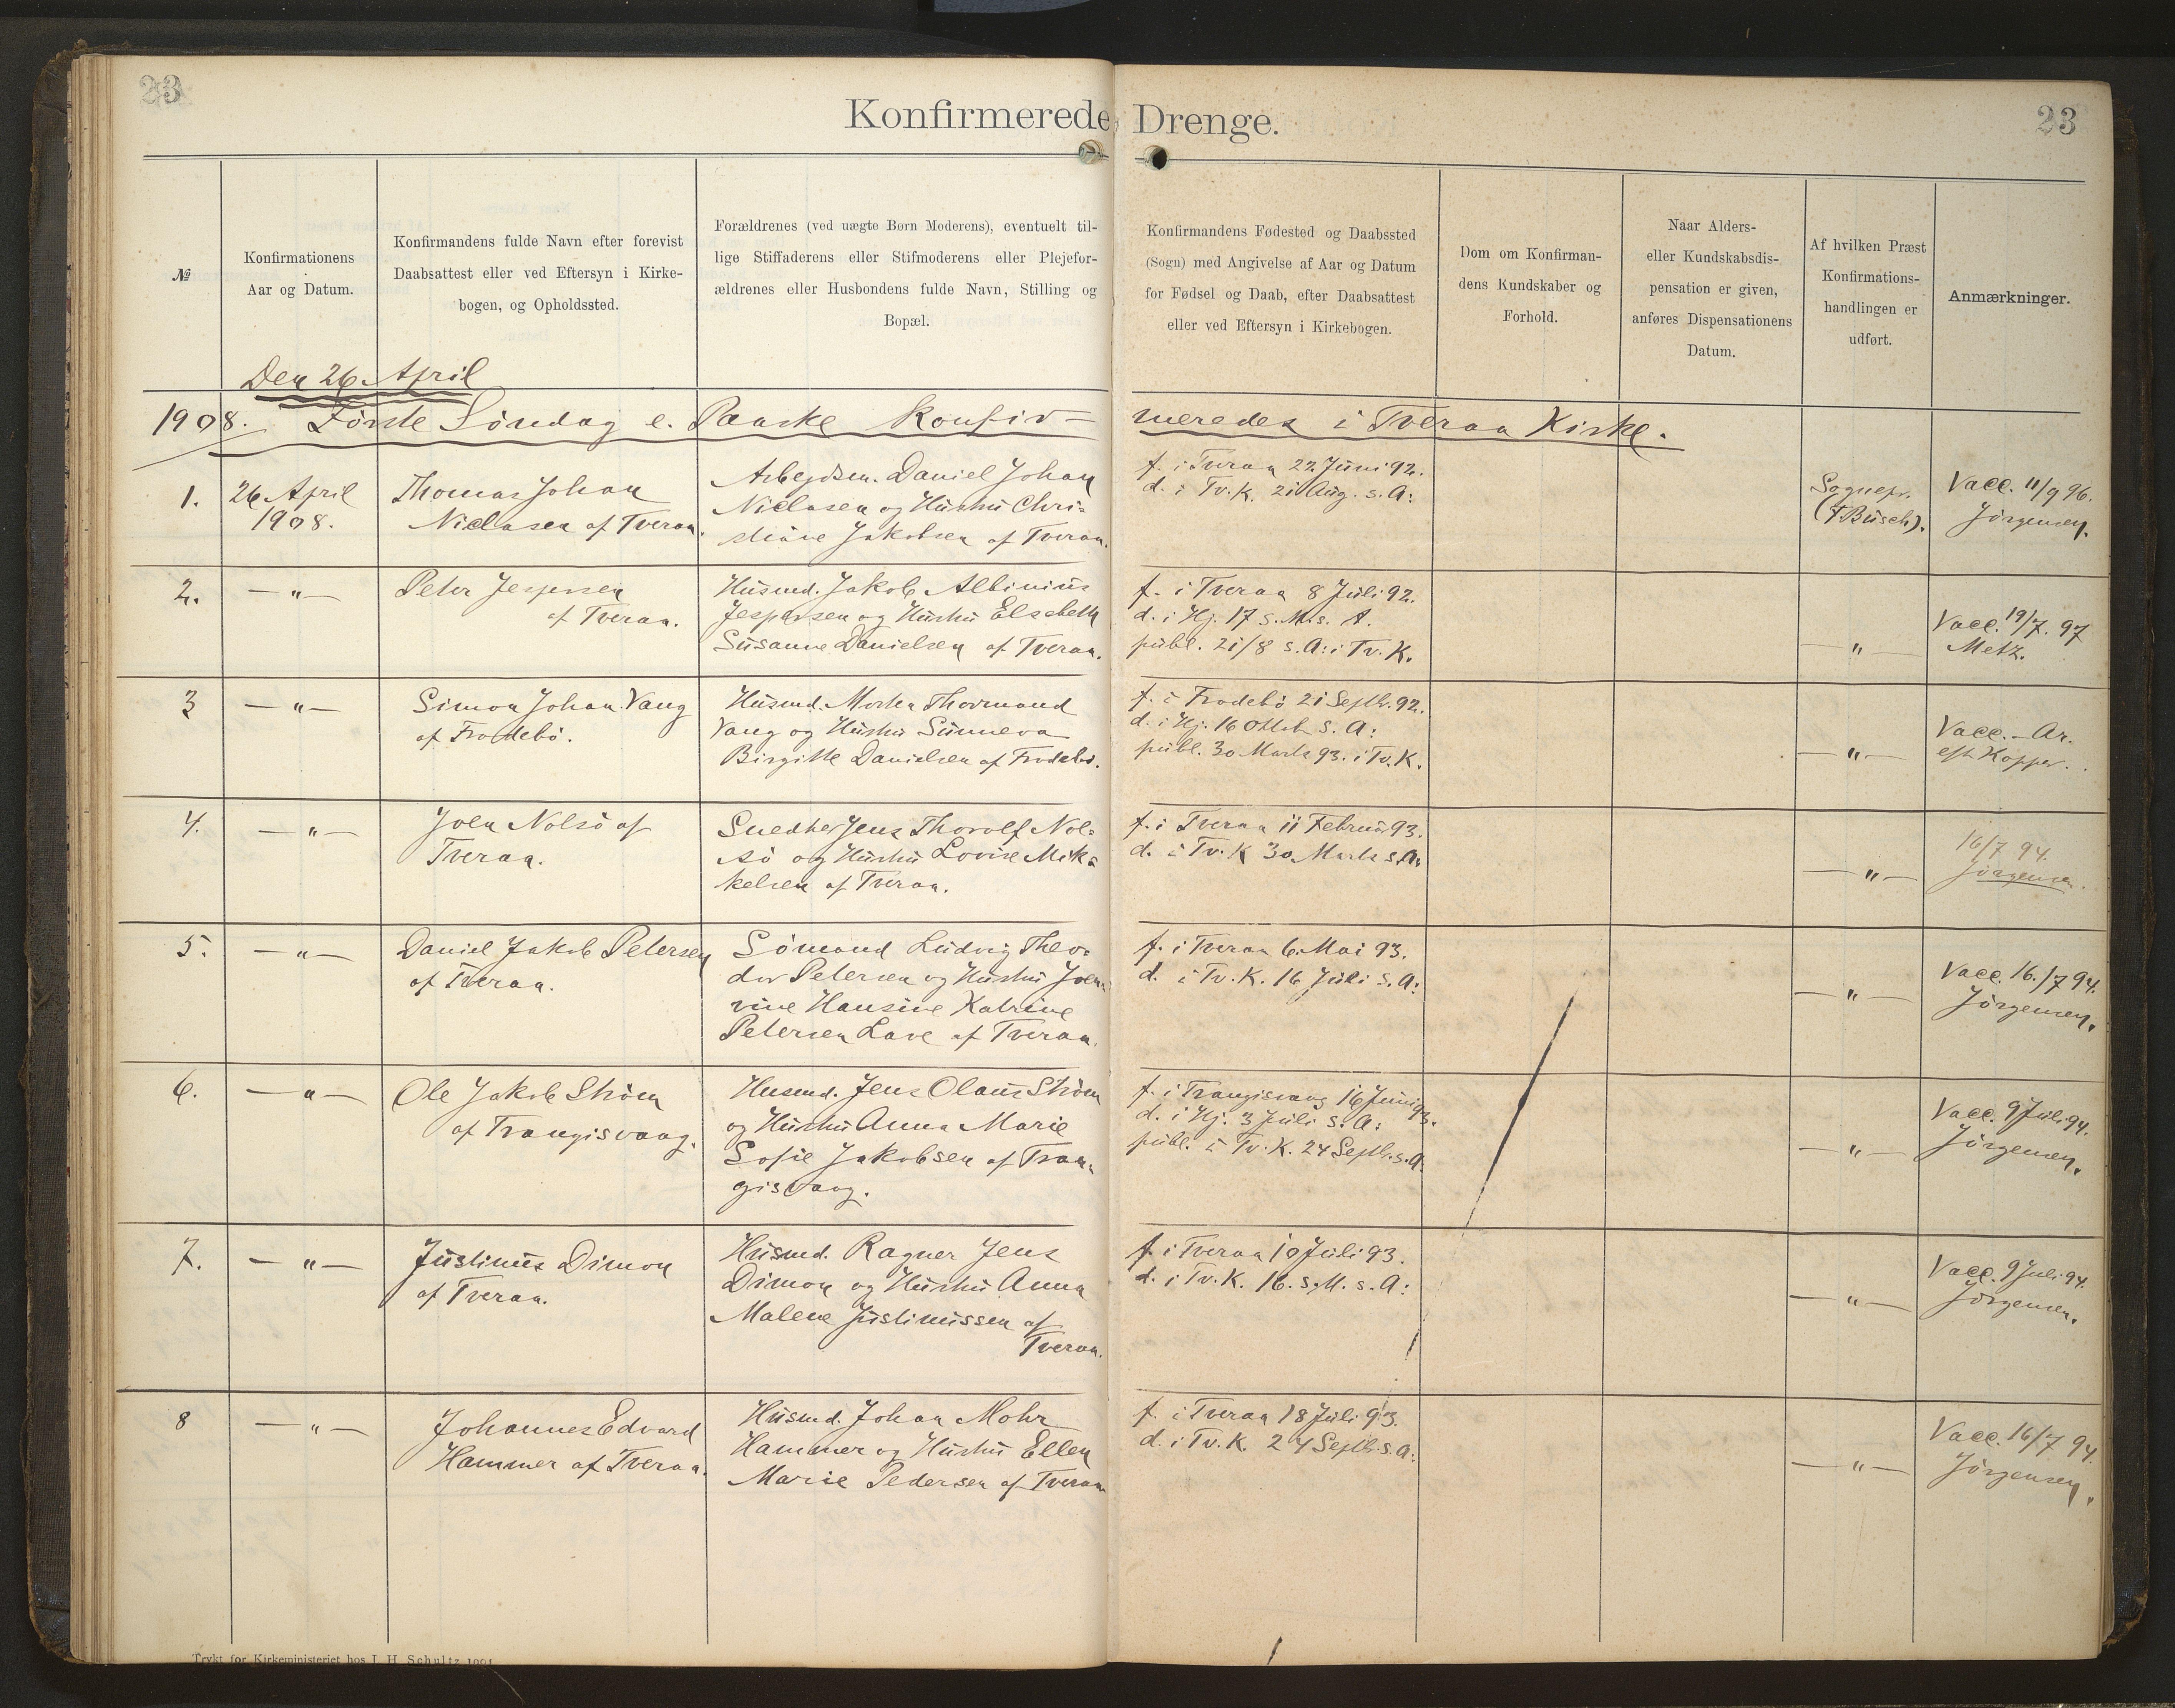 23
Konfirmerede Drenge.
23
№
Konfirmationens
Aar og Datum.
Konfirmandens fulde Navn efter forevist
Daabsattest eller ved Eftersyn i Kirke-
bogen, og Opholdssted.
Forældrenes (ved uægte Børn Moderens), eventuelt til-
lige Stiffaderens eller Stifmoderens eller Plejefor-
ældrenes eller Husbondens fulde Navn, Stilling og
Bopæl.
Konfirmandens Fødested og Daabssted
(Sogn) med Angivelse af Aar og Datum
for Fødsel og Daab, efter Daabsattest
eller ved Eftersyn i Kirkebogen.
Dom om Konfirman-
dens Kundskaber og
Forhold.
Naar Alders-
eller Kundskabsdis-
pensation er given,
anføres Dispensationens
Datum.
Af hvilken Præst
Konfirmations-
handlingen er
udført.
Anmærkninger.
Den 26 April
1908. Første Søndag e. Paaske Konfir=
meredes i Tveraa Kirke.
1.
26 April
1908.
Thomas Johan
Niclasen af Tveraa.
Arbejdsm. Daniel Johan
Niclasen og Hustru Chri=
stiane Jakobsen af Tveraa.
f. i Tveraa 22 Juni 92.
d. i Tv. K. 21 Aug. s. A:
Sognepr.
(F Busch).
Vacc. 11/9 96.
Jørgensen.
2.
— " —
Peter Jespersen
af Tveraa.
Husmd. Jakob Albinius
Jespersen og Hustru Elsebeth
Susanne Danielsen af Tveraa.
f. i Tveraa 8 Juli 92.
d. i Hj. 17 s. M. s. A.
publ. 21/8 s. A: i Tv. K.
— " —
Vacc. 19/7. 97
Metz.
3
— " —
Simon Johan Vang
af Frodebø.
Husmd. Morten Thormond
Vang og Hustru Sunneva
Birgitte Danielsen af Frodebø.
f. i Frodebø 21 Septb. 92.
d. i Hj. 16 Oktb s. A:
publ. 30 Marts 93. i Tv. K.
— " —
Vacc. – Ar.
eft. Kopper.
4.
— " —
Joen Nolsø af
Tveraa.
Snedker Jens Thorolf Nol=
sø og Hustru Lovise Mik=
kelsen af Tveraa.
f. i Tveraa 11 Februar 93.
d. i Tv. K 30 Marts s. A:
— " —
16/7 94.
Jørgensen.
5.
— " —
Daniel Jakob Petersen
af Tveraa.
Sømand Ludvig Theo=
dor Petersen og Hustru Joen=
vine Hansine Katrine
Petersen Lave af Tveraa.
f. i Tveraa 6. Mai 93.
d. i Tv. K. 16 Juli s. A:
— " —
Vacc. 16./7 94.
Jørgensen.
6.
— " —
Ole Jakob Strøm
af Trangisvaag.
Husmd. Jens Olaus Strøm
og Hustru Anna Marie
Sofie Jakobsen af Tran=
gisvaag.
f. i Trangisvaag 16 Juni 93.
d. i Hj. 3 Juli s. A:
publ. i Tv. K. 24 Septb. s. A.
— " —
Vacc. 9 Juli 94.
Jørgensen.
7.
— " —
Justinus Dimon
af Tveraa.
Husmd. Ragner Jens
Dimon og Hustru Anna
Malene Justinussen af
Tveraa.
f. i Tveraa 10 Juli 93.
d. i Tv. K. 16. s. M. s. A:
— " —
Vacc. 9 Juli 94.
Jørgensen.
8
— " —
Johannes Edvard
Hammer af Tveraa.
Husmd. Johan Mohr
Hammer og Hustru Ellen
Marie Pedersen af Tveraa
f. i Tveraa 18 Juli 93.
d. i Tv. K. 24 Septb. s. A:
— " —
Vacc. 16/7 94.
Jørgensen.
Trykt for Kirkeministeriet hos J. H. Schultz 1901